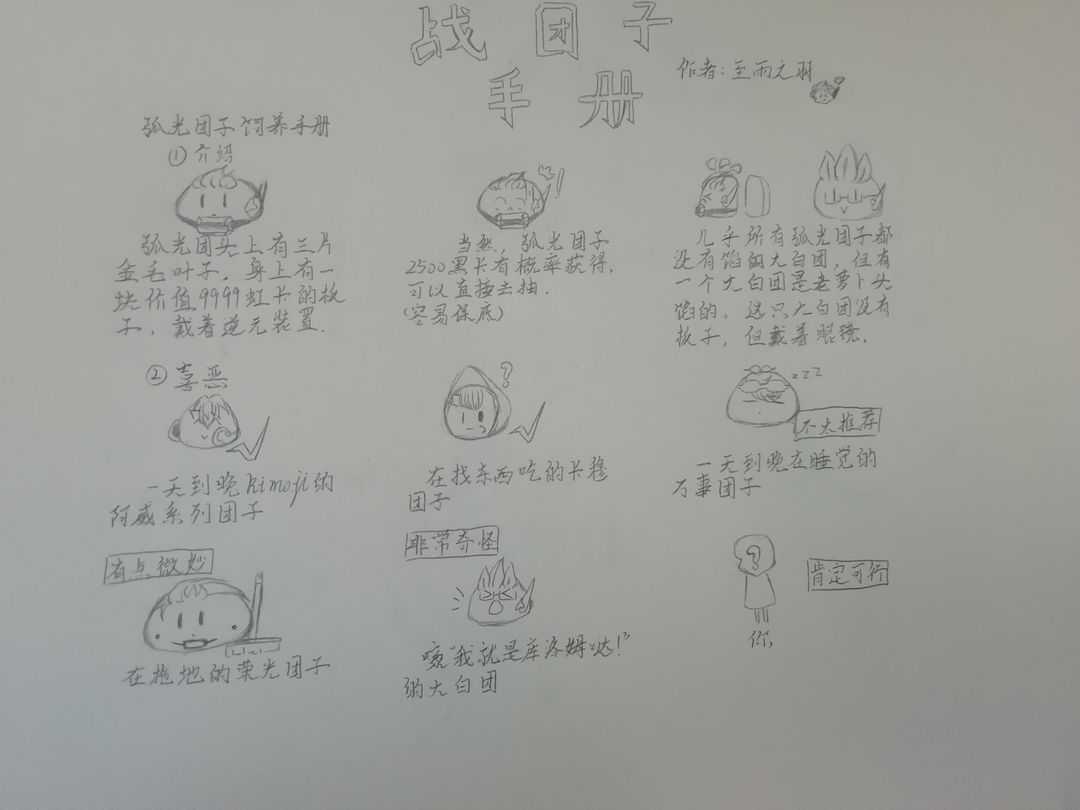 战团子
手册
作者：至雨之羽
弧光团子饲养手册
①介绍
弧光团头上有三片
金毛叶子，身上有一
块价值9999虹卡的板
子，戴着逆元装置．
当然，弧光团子
2500黑卡有概率获得，
可以直接去抽．
（容易保底）
几乎所有弧光团子都
没有馅的大白团，但有
一个大白团是老萝卜头
馅的。这只大白团没有
板子，但戴着眼镜．
②喜恶
一天到晚kimoji的
阿威系列团子
?
在找东西吃的卡穆
团子
zzz
不太推荐
一天到晚在睡觉的
万事团子
有点微妙
在拖地的荣光团子
非常奇怪
喊“我就是库洛姆哒！”
的大白团
?
肯定可行
你，